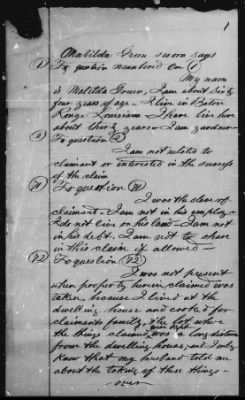 1
Matilda Green sworn says
1) To question numbered One (1)
My name
is Matilda Green, I am about Sixty
four years of age - I live in Baton
Rouge Louisiana I have lived here
about thirty years - I am gardener
2) To question (2)
I am not related to
claimant or interested in the success
of the claim
To question
I was the slave of
claimant - I am not in his employ -
I do not live on his land - I am not
in his debt. I am not to share
in this claim if allowed -
72) To question (72)
I was not present
when property herein claimed was
taken, because I lived at the
dwelling house and cooked for
claimants family, the lot where
the things claimed were kept was a long distance
from the dwelling house, and I only
know that my husband told me
about the taking of these things -
over